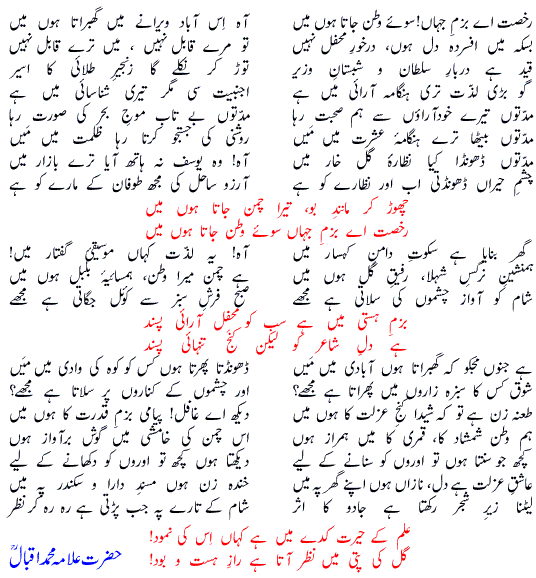 رخصت اے بزمِ جہاں! سوئے وطن جاتا ہوں میں آہ اِس آباد ویرانے میں گھبراتا ہوں میں
بسکہ میں افسردہ دل ہوں، درخورِ محفل نہیں تو مرے قابل نہیں، میں ترے قابل نہیں
قید ہے دربارِ سلطان و شبستانِ وزیر توڑ کر نکلے گا زنجیرِ طلائی کا اسیر
گو بڑی لذّت تری ہنگامہ آرائی میں ہے اجنبیت سی مگر تیری شناسائی میں ہے
مدّتوں تیرے خودآراؤں سے ہم صحبت رہا مدّتوں بے تاب موجِ بحر کی صورت رہا
مدّتوں بیٹھا ترے ہنگامۂ عشرت میں مَیں روشنی کی جستجو کرتا رہا ظلمت میں مَیں
مدّتوں ڈھونڈا کیا نظّارۂ گل خار میں آہ! وہ یوسف نہ ہاتھ آیا ترے بازار میں
چشمِ حیراں ڈھونڈتی اب اور نظارے کو ہے آرزو ساحل کی مجھ طوفان کے مارے کو ہے
چھوڑ کر مانندِ بو، تیرا چمن جاتا ہوں میں
رخصت اے بزمِ جہاں سوئے وطن جاتا ہوں میں
گھر بنایا ہے سکوتِ دامنِ کہسار میں آہ! یہ لذّت کہاں موسیقیِ گفتار میں!
ہمنشینِ نرگسِ شہلا، رفیقِ گل ہوں میں ہے چمن میرا وطن، ہمسایۂ بلبل ہوں میں
شام کو آواز چشموں کی سلاتی ہے مجھے صبح فرشِ سبز سے کوئل جگاتی ہے مجھے
بزمِ ہستی میں ہے سب کو محفل آرائی پسند
ہے دلِ شاعر کو لیکن کنجِ تنہائی پسند
ہے جنوں مجھکو کہ گھبراتا ہوں آبادی میں مَیں ڈھونڈتا پھرتا ہوں کس کو کوہ کی وادی میں مَیں
شوق کس کا سبزہ زاروں میں پھراتا ہے مجھے؟ اور چشموں کے کناروں پر سلاتا ہے مجھے؟
طعنہ زن ہے تو کہ شیدا کنجِ عزلت کا ہوں میں دیکھ اے غافل! پیامی بزمِ قدرت کا ہوں میں
ہم وطن شمشاد کا، قمری کا میں ہمراز ہوں اس چمن کی خامشی میں گوش برآواز ہوں
کچھ جو سنتا ہوں تو اوروں کو سنانے کے لیے دیکھتا ہوں کچھ تو اوروں کو دکھانے کے لیے
عاشقِ عزلت ہے دل، نازاں ہوں اپنے گھر پہ میں خندہ زن ہوں مسندِ دارا و سکندر پہ میں
لیٹنا زیرِ شجر رکھتا ہے جادو کا اثر شام کے تارے پہ جب پڑتی ہے رہ رہ کر نظر
علم کے حیرت کدے میں ہے کہاں اِس کی نمود!
گل کی پتی میں نظر آتا ہے رازِ ہست و بود!
حضرت علامہ محمد اقبالؒ